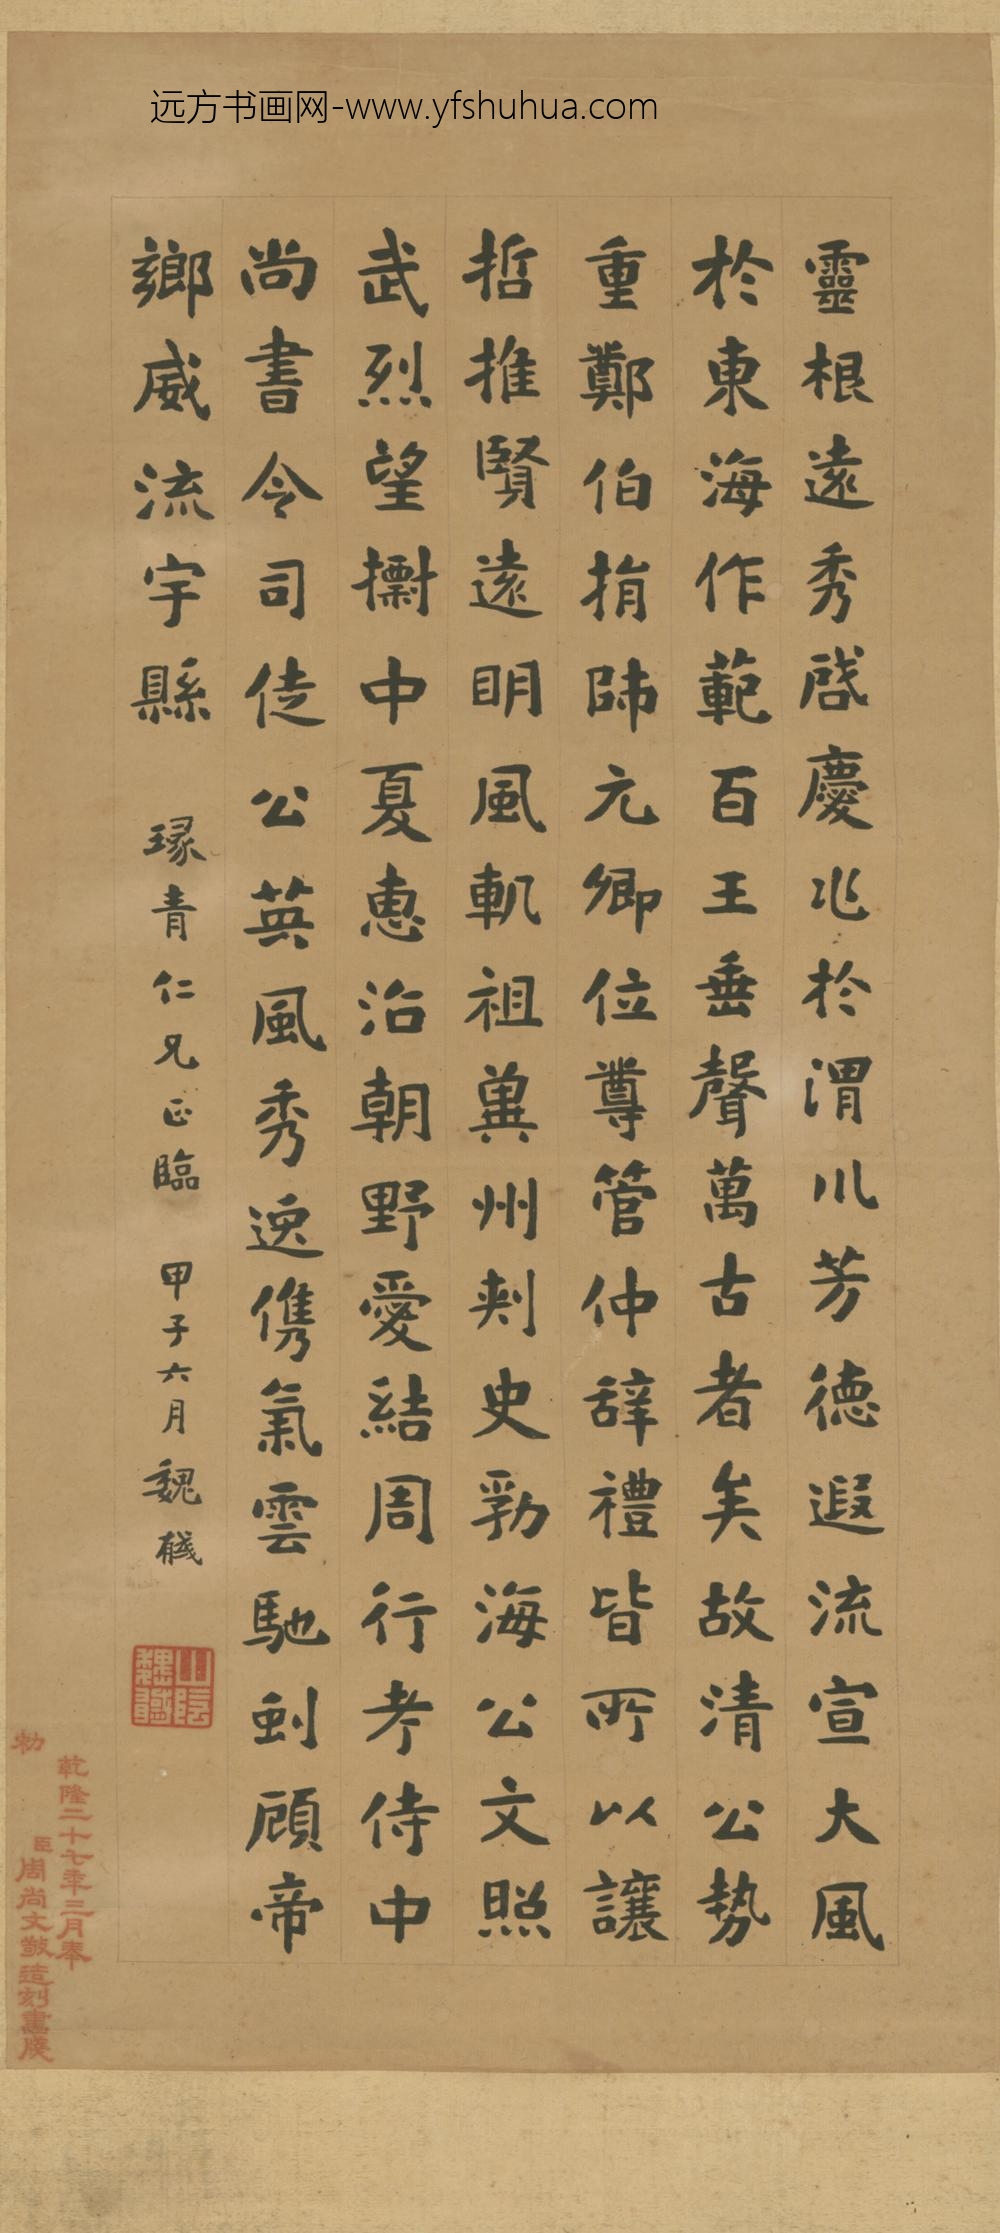 远方书画网-www.yfshuhua.com
靈根遠秀啓慶兆於渭川芳德遐流宣大風
於東海作範百王垂聲萬古者矣故清公勢
重鄭伯捐師元卿位尊管仲辞禮皆所以讓
哲推賢遠明風軌祖冀州刺史勃海公文照
武烈望摽中夏惠洽朝野愛結周行考侍中
尚書令司徒公英風秀逸儁氣雲馳到顧帝
鄉威流宇縣
琢青仁兄正臨 甲子六月魏戫
山陰魏戫
乾隆二十七年三月奉
勅
臣周尚文敬造刻畫牋